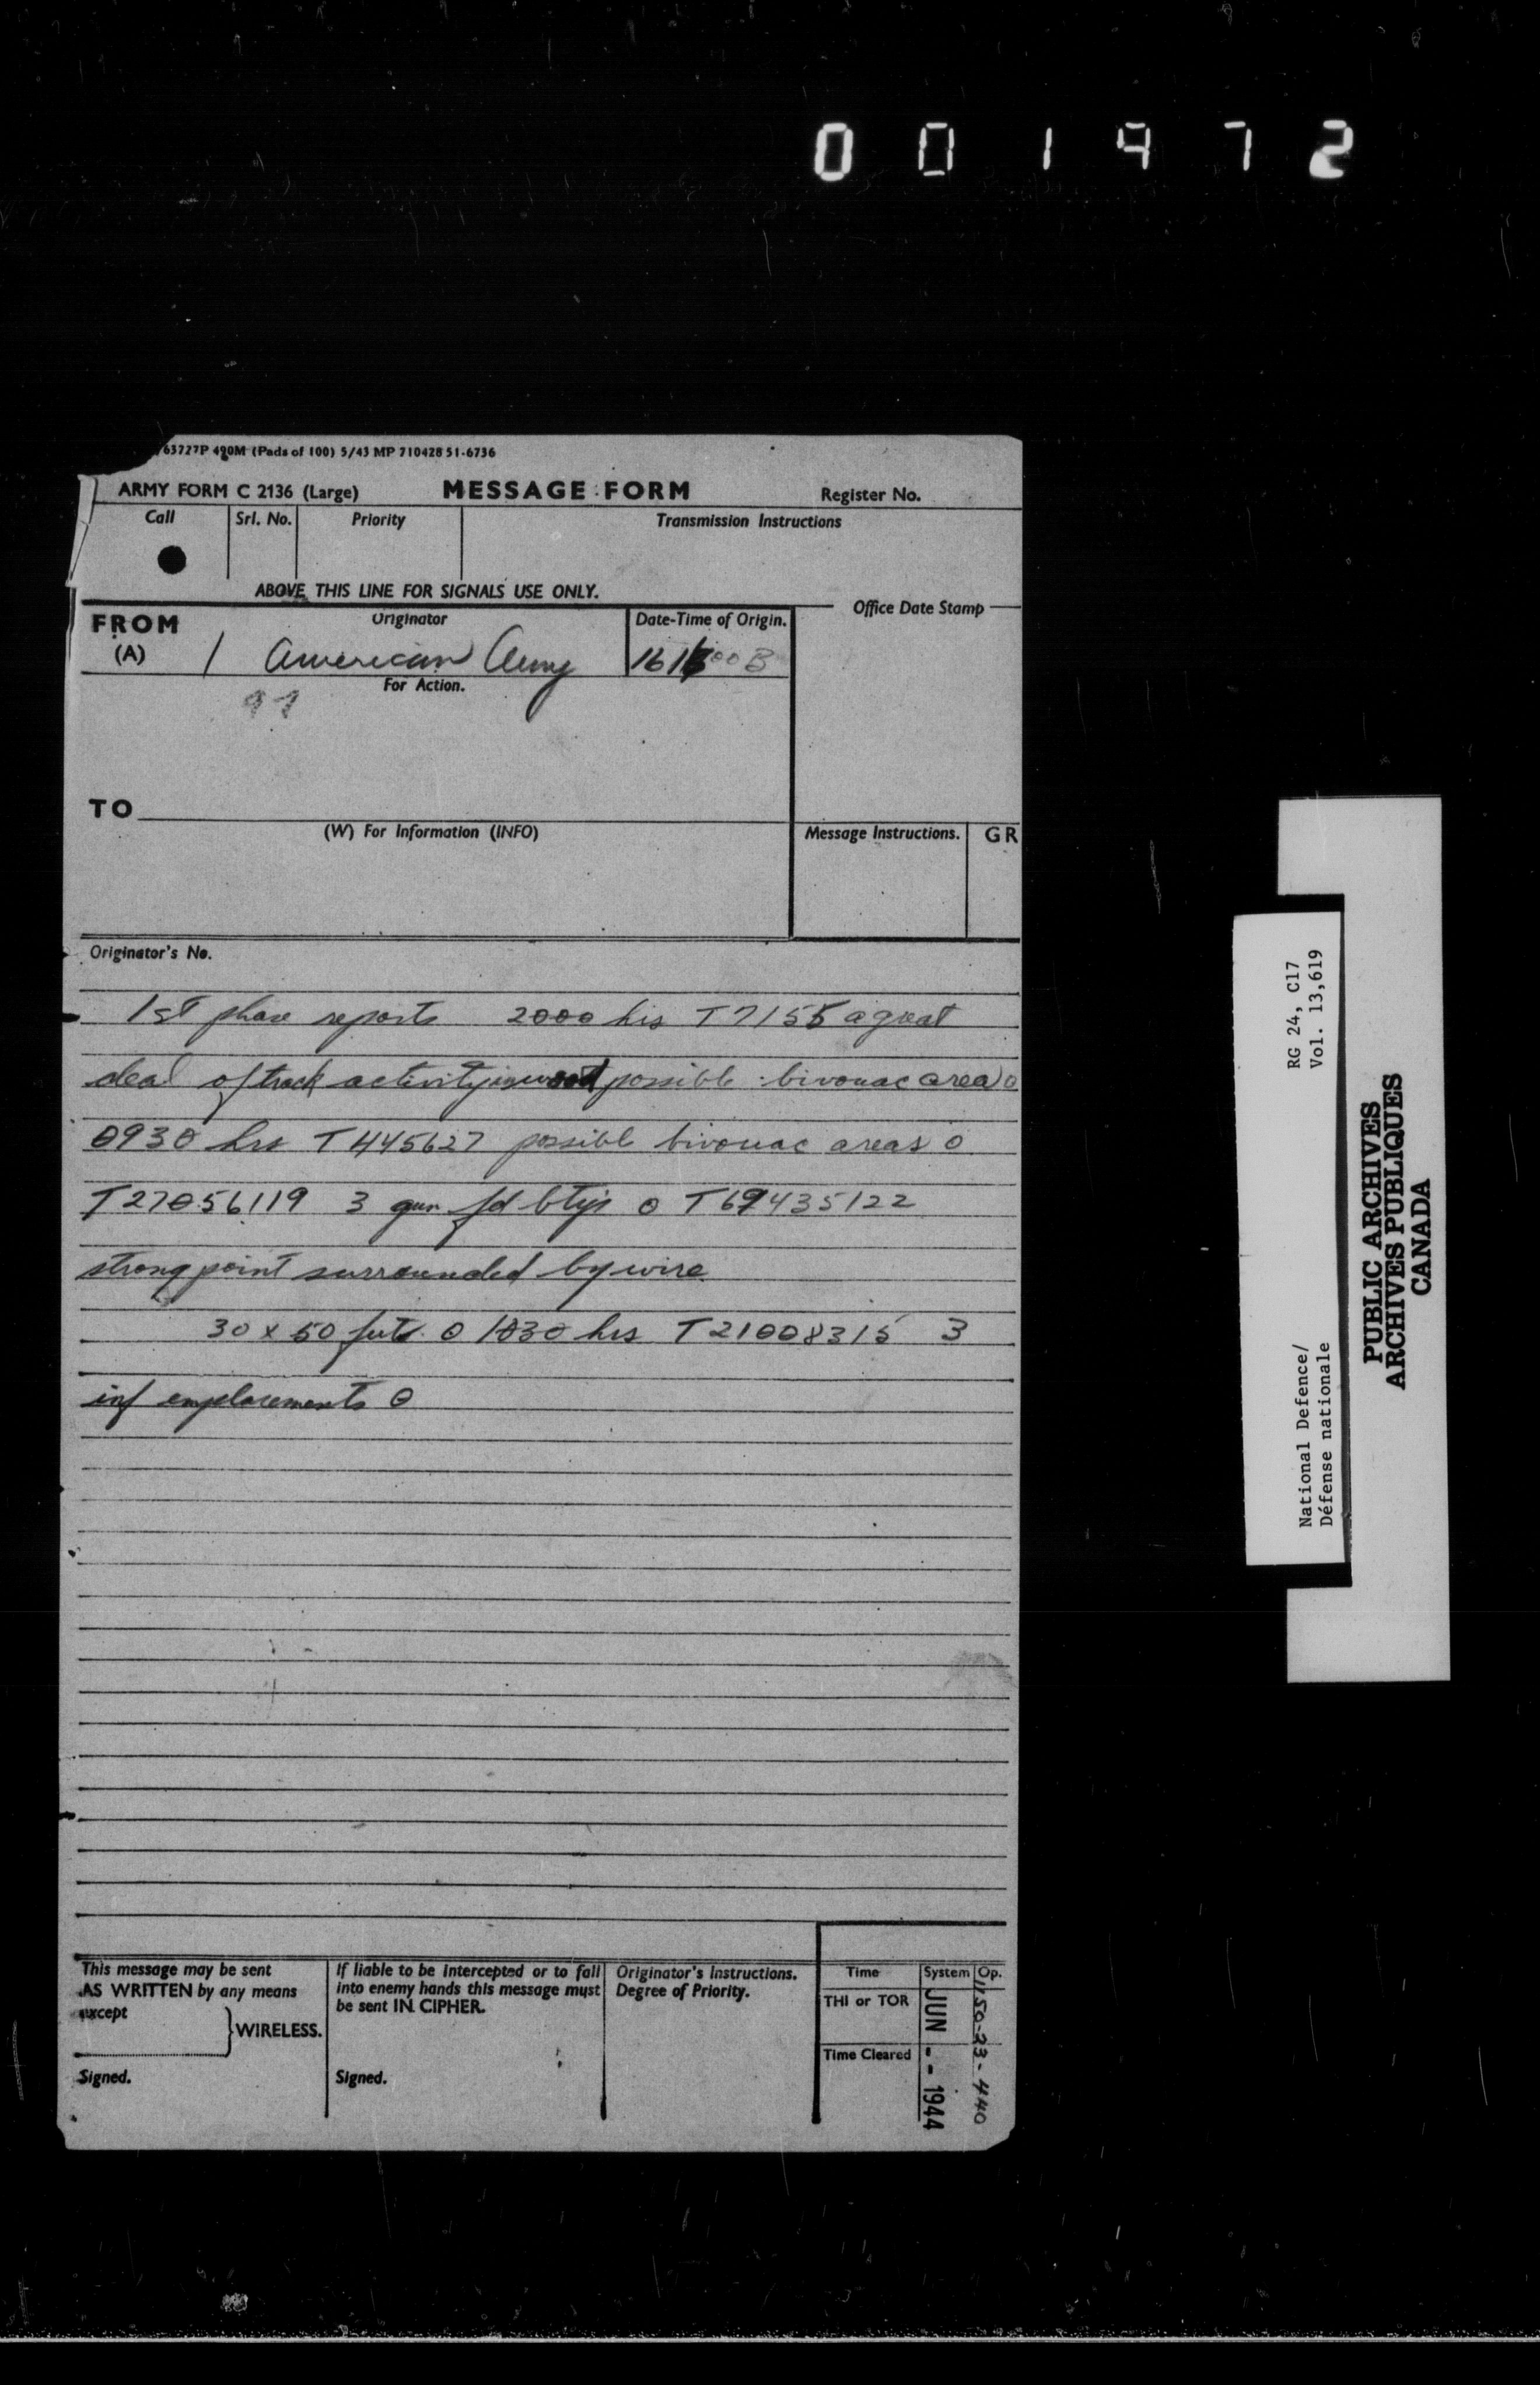 001972
63727P 490M (Pads of 100) 5/43 MP 710428 51-6736
ARMY FORM C 2136 (Large) MESSAGE FORM Register No.
Call Srl. No. Priority Transmission Instructions
ABOVE THIS LINE FOR SIGNALS USE ONLY.
FROM (A) Originator Date-Time of Origin. Office Date Stamp
1 American Army 16 00 B
For Action.
TO
(W) For Information (INFO) Message Instructions. GR
Originator's No.
1st phase reports 2000 hrs T7155 a great
deal of track activity in wood possible bivouac area 0
0930 hrs T445627 possible bivouac areas 0
T27056119 3 gun fd btys 0 T69435122
strong point surrounded by wire
30 x 50 feet 0 1030 hrs T21008315 3
inf emplacements 0
This message may be sent AS WRITTEN by any means except } WIRELESS.
Signed.
If liable to be intercepted or to fall into enemy hands this message must be sent IN CIPHER.
Signed.
Originator's Instructions. Degree of Priority.
Time System Op.
THI or TOR
Time Cleared
JUN - - 1944
50-23-440
RG 24, C17
Vol. 13,619
National Defence/
Défense nationale
PUBLIC ARCHIVES
ARCHIVES PUBLIQUES
CANADA